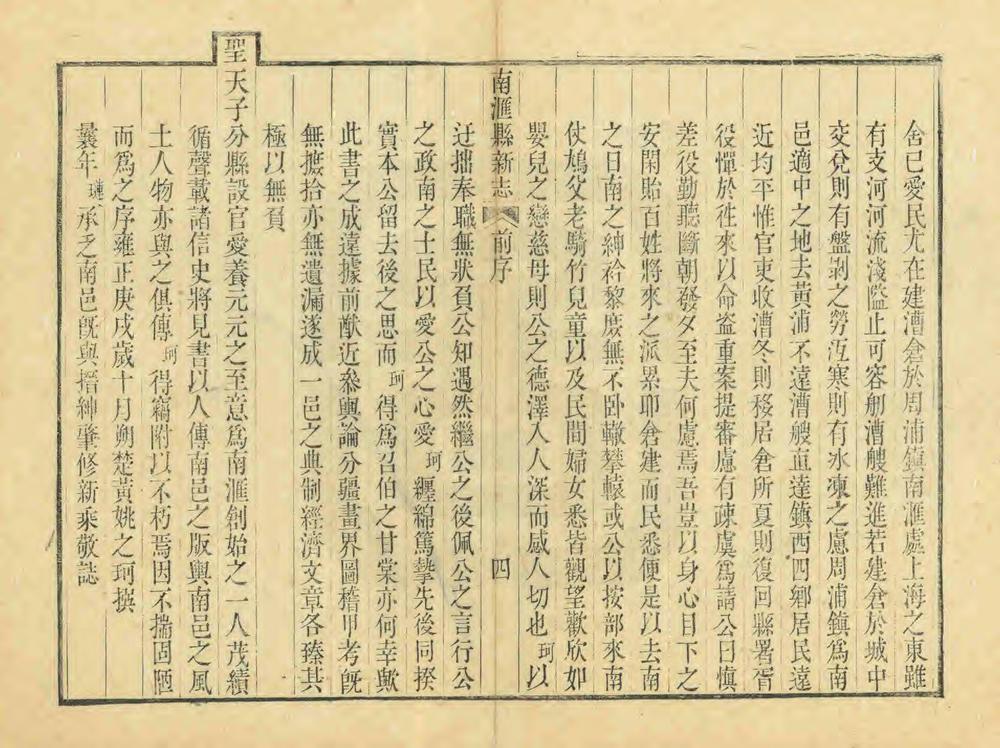 舍己愛民尤在建漕倉於周浦鎮南滙處上海之東雖
有支河河流淺隘止可容舠漕艘難進若建倉於城中
交兌則有盤剝之勞沍寒則有冰凍之慮周浦鎮爲南
邑適中之地去黃浦不遠漕艘直達鎮西四鄉居民遠
近均平惟官吏收漕冬則移居倉所夏則復回縣署胥
役憚於徃來以命盗重案提審慮有疎虞爲請公曰慎
差役勤聽斷朝發夕至夫何慮焉吾豈以身心目下之
安閑貽百姓將來之派累耶倉建而民悉便是以去南
之日南之紳衿黎庶無不卧轍攀轅或公以按部來南
仗鳩父老騎竹兒童以及民間婦女悉皆觀望歡欣如
嬰兒之戀慈母則公之德澤入人深而感人切也珂以
南滙縣新志 前序 四
迂拙奉職無狀負公知遇然繼公之後佩公之言行公
之政南之士民以愛公之心愛珂纒綿篤摯先後同揆
實本公留去後之思而珂得爲召伯之甘棠亦何幸歟
此書之成遠據前猷近叅輿論分疆畫界圖稽甲考旣
無摭拾亦無遺漏遂成一邑之典制經濟文章各臻其
極以無負
聖天子分縣設官愛養元元之至意爲南滙創始之一人茂績
循聲載諸信史將見書以人傳南邑之版輿南邑之風
土人物亦與之俱傳珂得竊附以不朽焉因不揣固陋
而爲之序雍正庚戌歲十月朔楚黃姚之珂撰
曩年璉承乏南邑旣與搢紳肇修新乘敬誌